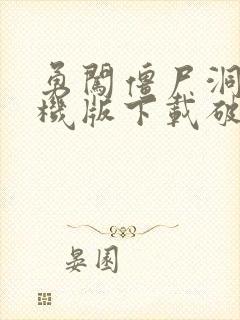 勇闯僵尸洞
機版下載破
晏園